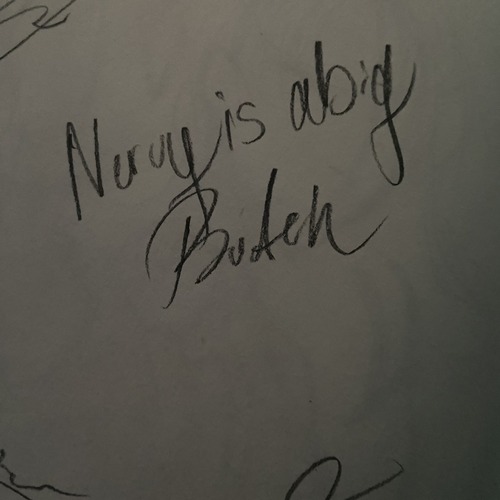 Nervy is a big
Butch